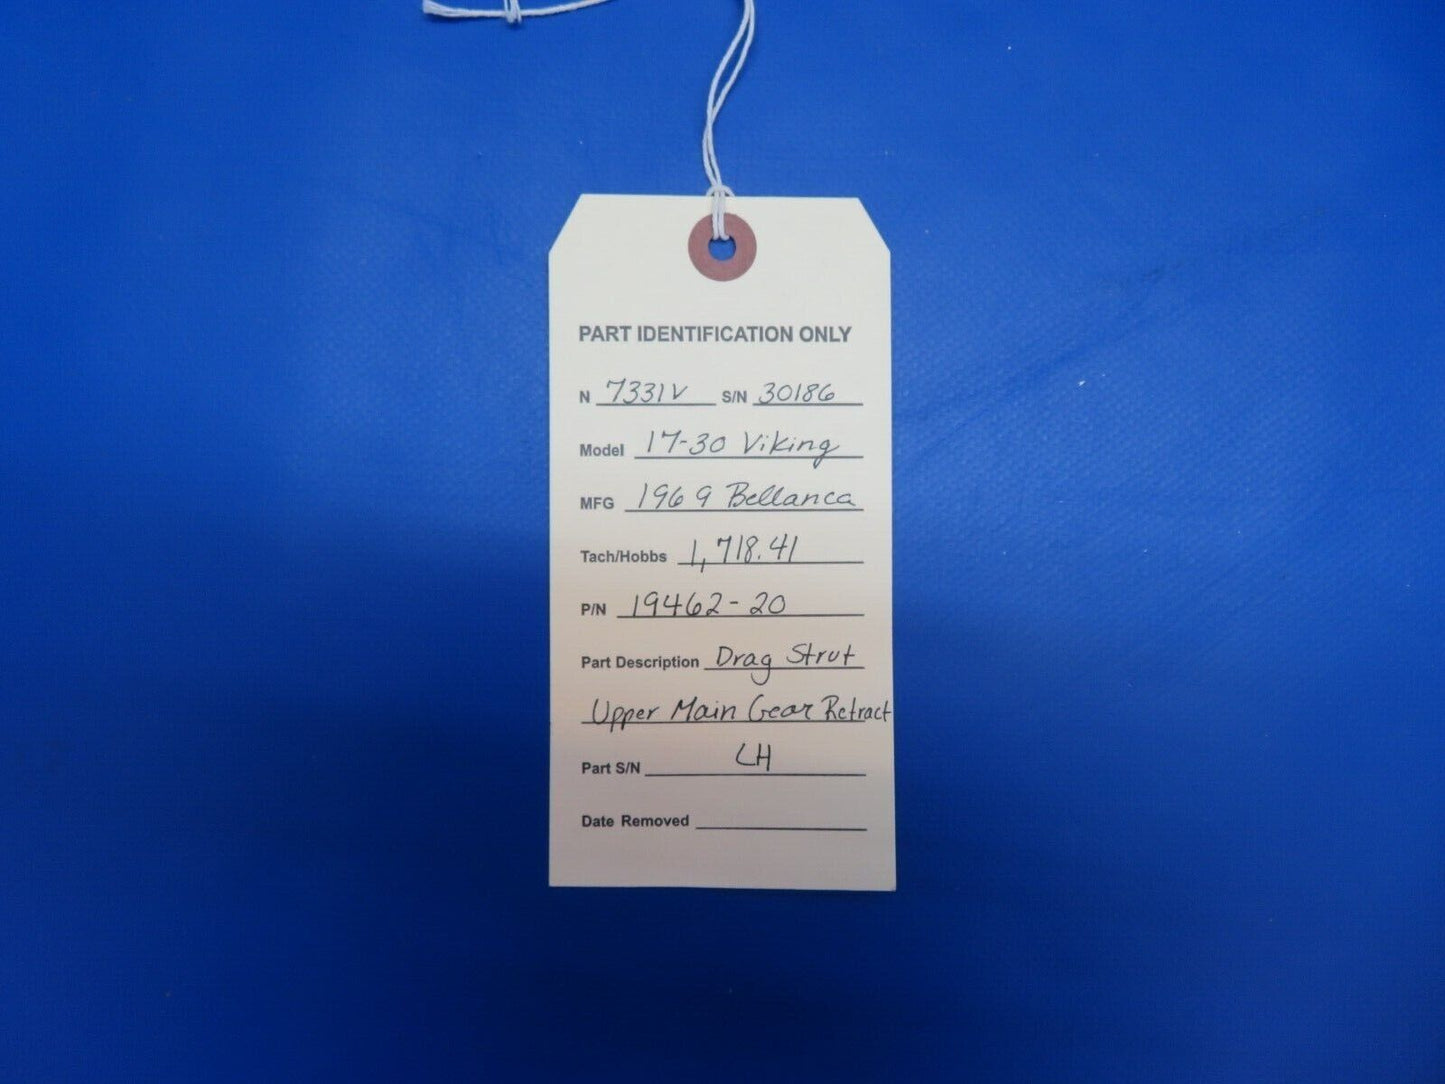 PART IDENTIFICATION ONLY
N 7331V S/N 30186
Model 17-30 Viking
MFG 1969 Bellanca
Tach/Hobbs 1,718.41
P/N 19462-20
Part Description Drag Strut
Upper Main Gear Retract
Part S/N LH
Date Removed